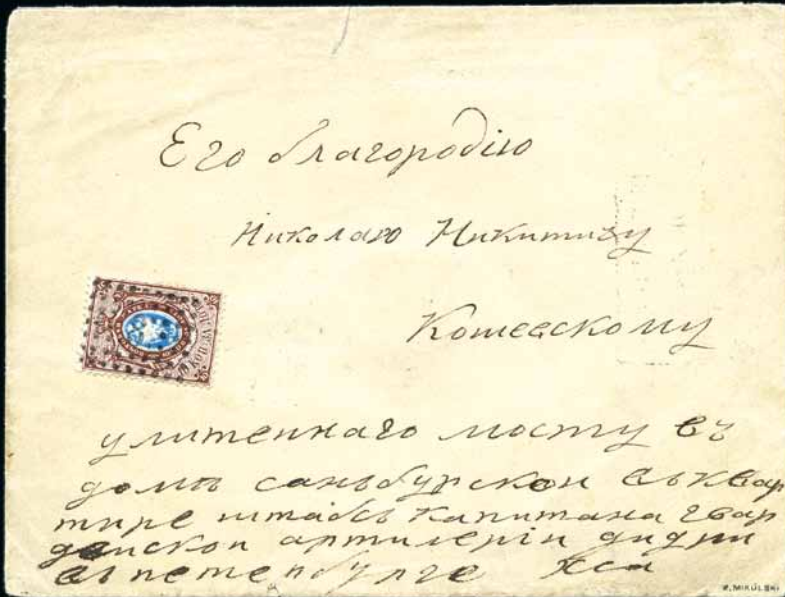 Его благородію
Николаю Никитичу
Кошевскому
улитеннаго мосту въ
доми саньбурскои въ квар
тире штабсь капитана гвар
деискои артилеріи
въ петенбурге
P. MIKULSKI